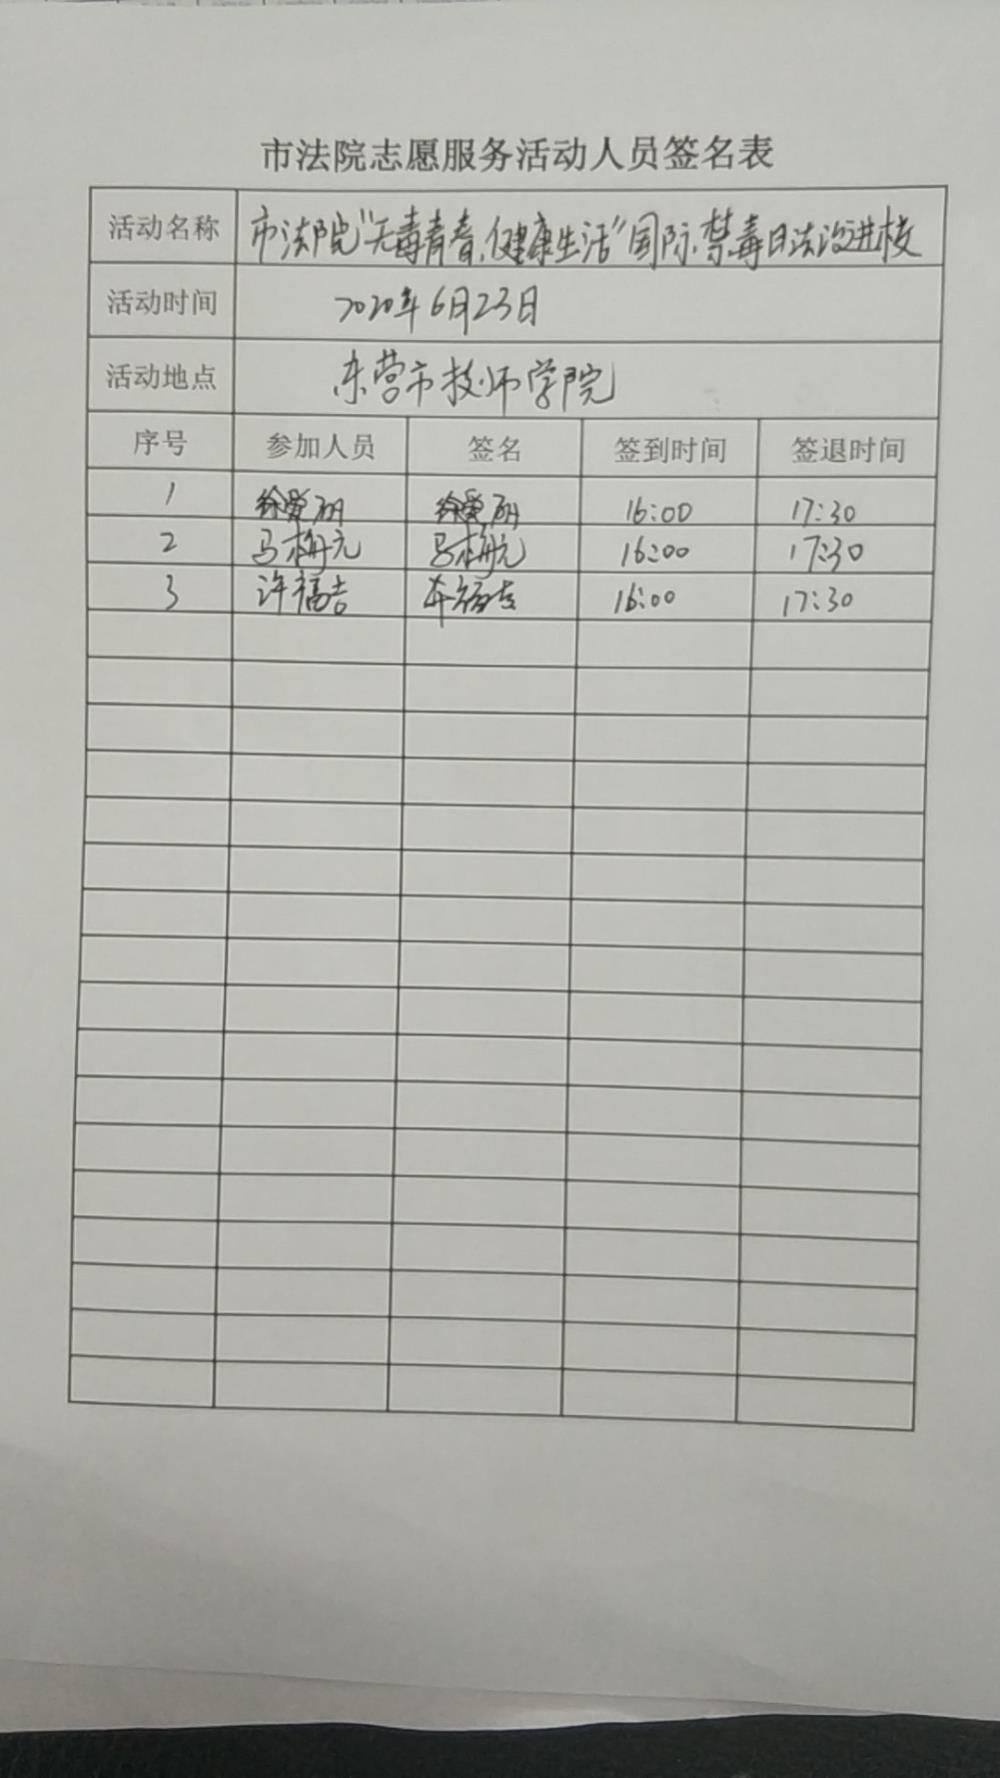 市法院志愿服务活动人员签名表
活动名称 市法院"无毒青春,健康生活"国际禁毒日法治进校
活动时间 2020年6月23日
活动地点 东营市技师学院
序号 参加人员 签名 签到时间 签退时间
1 徐爱丽 徐爱丽 16:00 17:30
2 马梅元 马梅元 16:00 17:30
3 许福吉 许福吉 16:00 17:30